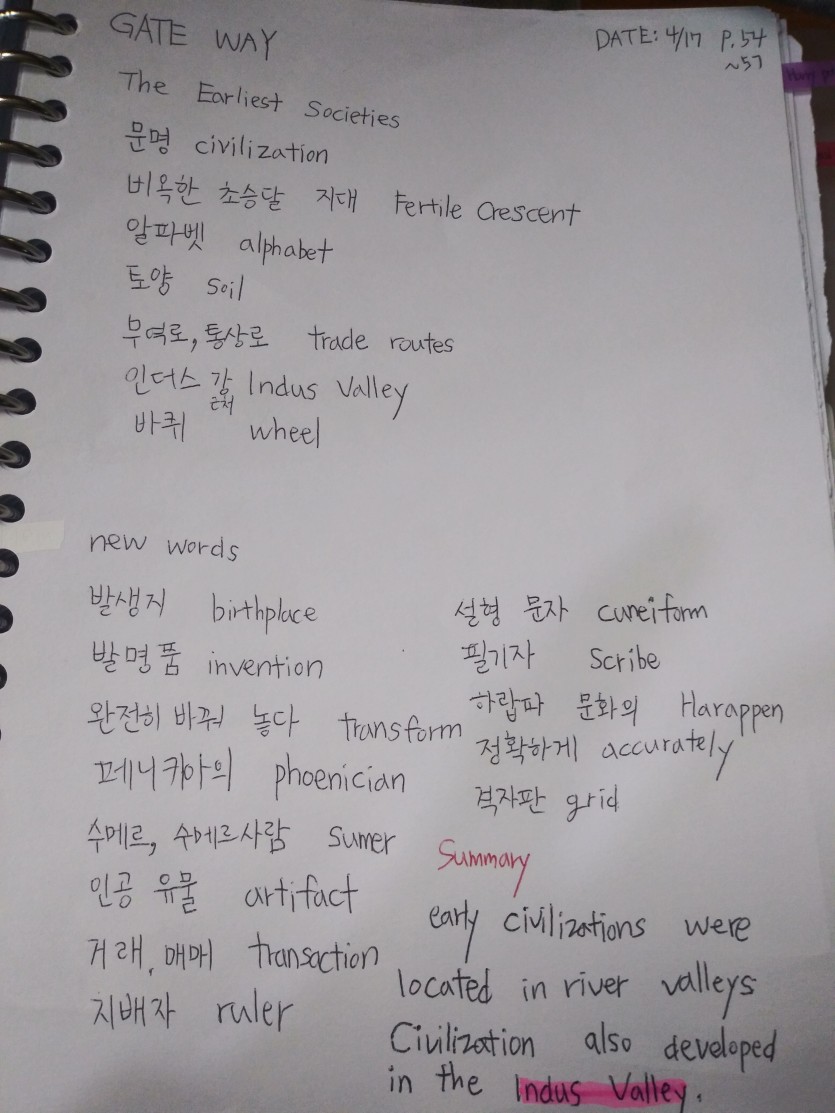 GATE WAY
DATE: 4/17 P.54
~57
The Earliest Societies
문명 civilization
비옥한 초승달 지대 Fertile Crescent
알파벳 alphabet
토양 soil
무역로, 통상로 trade routes
인더스 강 Indus Valley
근처
바퀴 wheel
new words
발생지 birthplace
발명품 invention
완전히 바꿔 놓다 transform
페니키아의 phoenician
수메르, 수메르사람 Sumer
인공 유물 artifact
거래, 매매 transaction
지배자 ruler
설형 문자 cuneiform
필기자 Scribe
하랍파 문화의 Harappen
정확하게 accurately
격자판 grid
Summary
early civilizations were
located in river valleys
Civilization also developed
in the Indus Valley.